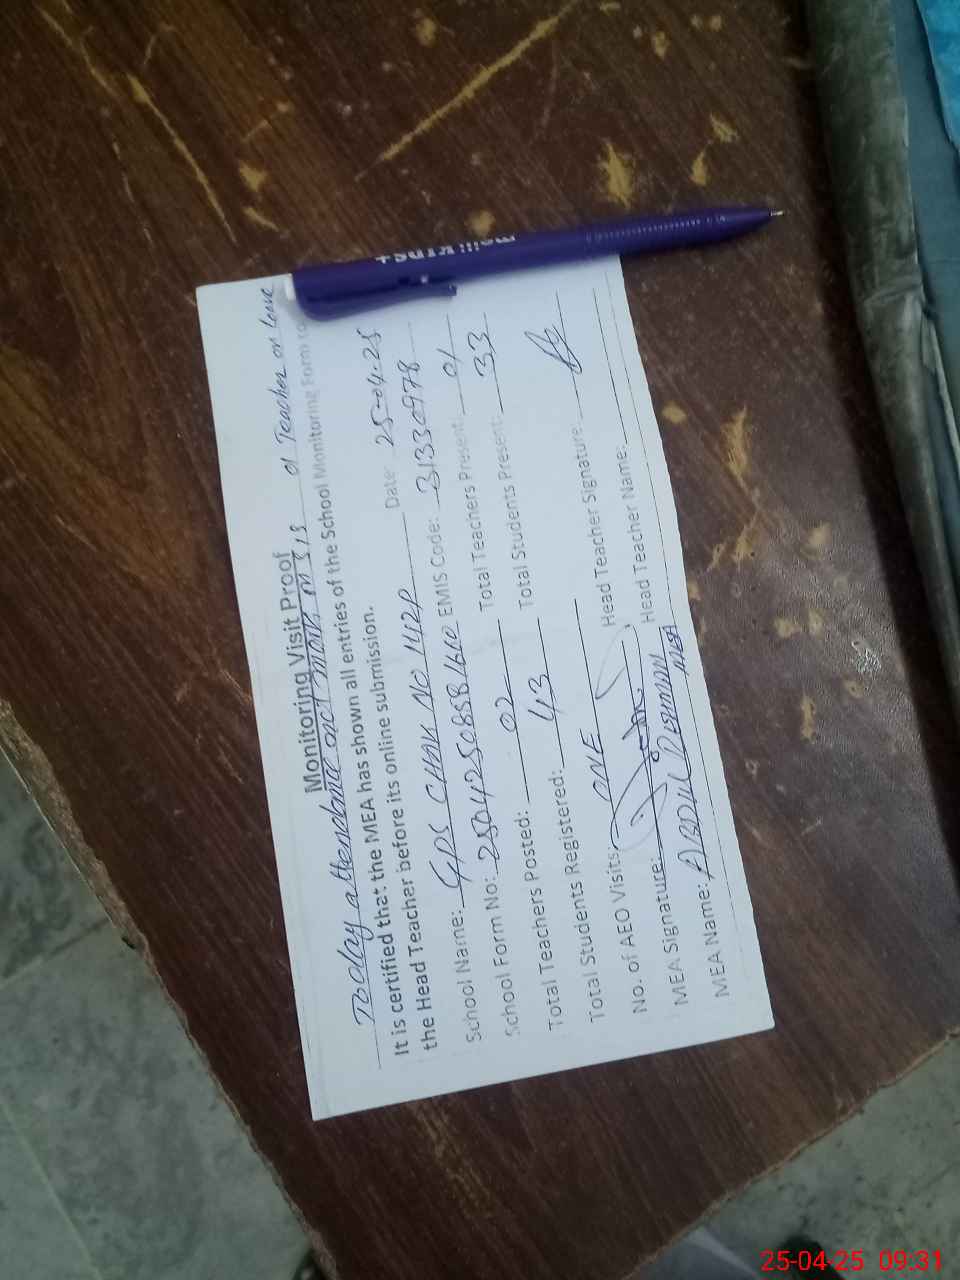 Monitoring Visit Proof
Today attendance not mark in SIS 01 Teacher on Leave
It is certified that the MEA has shown all entries of the School Monitoring Form to
the Head Teacher before its online submission.
School Name: GPS CHAK NO 142P Date: 25-04-25
School Form No: 25042508581610 EMIS Code: 31330978
Total Teachers Posted: 02 Total Teachers Present: 01
Total Students Registered: 43 Total Students Present: 33
No. of AEO Visits: ONE Head Teacher Signature:
MEA Signature: Head Teacher Name:
MEA Name: ABDUL REHMAN MEA
25-04-25 09:31